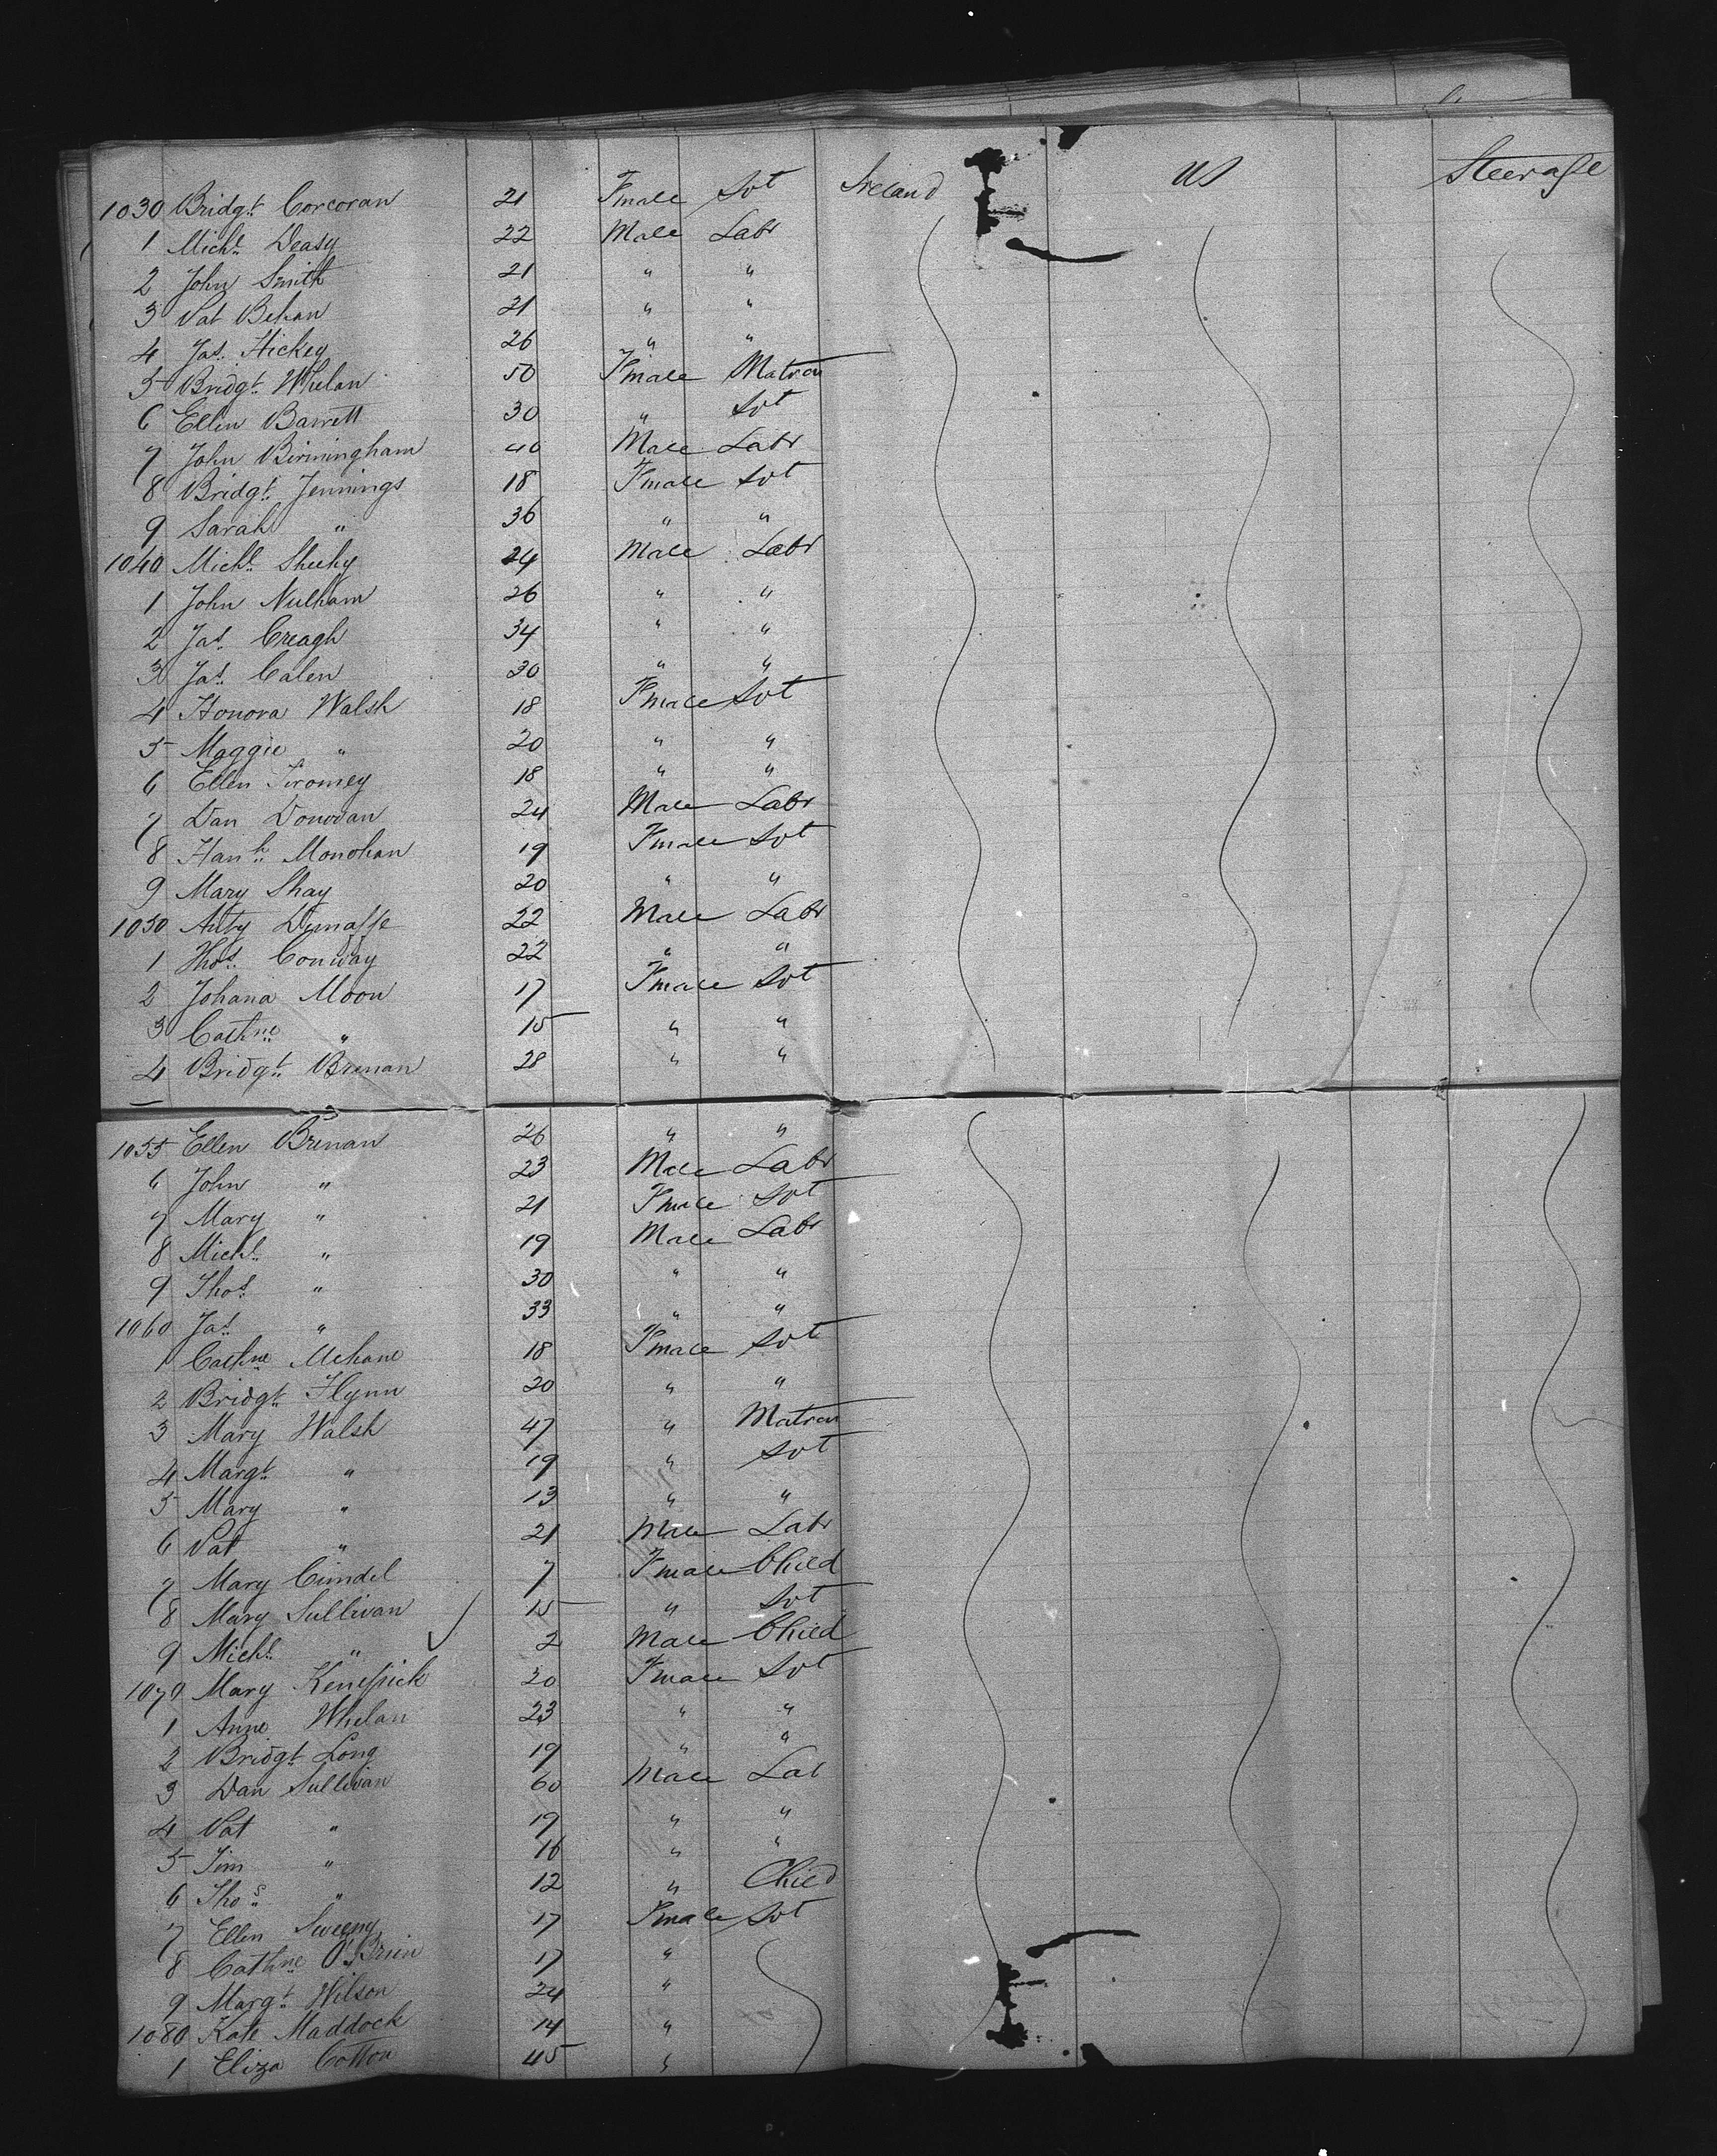 1030 Bridgt Corcoran 21 Fmale Svt Ireland US Steerage
1 Michl Deasy 22 Male Labr
2 John Smith 21 " "
3 Pat Behan 21 " "
4 Jas. Hickey 26 " "
5 Bridgt Whelan 50 Fmale Matron
6 Ellen Barrett 30 " Svt
7 John Birmingham 40 Male Labr
8 Bridgt Jennings 18 Fmale Svt
9 Sarah " 36 " "
1040 Michl Sheehy 24 Male Labr
1 John Nulham 26 " "
2 Jas. Creagh 34 " "
3 Jas. Calen 30 " "
4 Honora Walsh 18 Fmale Svt
5 Maggie " 20 " "
6 Ellen 18 " "
7 Dan Donovan 24 Male Labr
8 Hanh Monohan 19 Fmale Svt
9 Mary Shay 20 " "
1050 Anty 22 Male Labr
1 Thos. Conway 22 " "
2 Johana Moon 17 Fmale Svt
3 Cathne " 15 " "
4 Bridgt Brenan 28 " "
1055 Ellen Brenan 26 " "
6 John " 23 Male Labr
7 Mary " 21 Fmale Svt
8 Michl " 19 Male Labr
9 Thos. " 30 " "
1060 Jas. " 33 " "
1 Cathne Mehane 18 Fmale Svt
2 Bridgt Flynn 20 " "
3 Mary Walsh 47 " Matron
4 Margt " 19 " Svt
5 Mary " 13 " "
6 Pat " 21 Male Labr
7 Mary 7 Fmale Child
8 Mary Sullivan 15 " Svt
9 Michl " 2 Male Child
1070 Mary 20 Fmale Svt
1 Anne Whelan 23 " "
2 Bridgt Long 19 " "
3 Dan Sullivan 60 Male Lab
4 Pat " 19 " "
5 Jim " 16 " "
6 Thos " 12 " Child
7 Ellen Sweeny 17 Fmale Svt
8 Cathne O'Brien 17 "
9 Margt Wilson 24 "
1080 Kate Maddock 14 "
1 Eliza Cotton 45 "